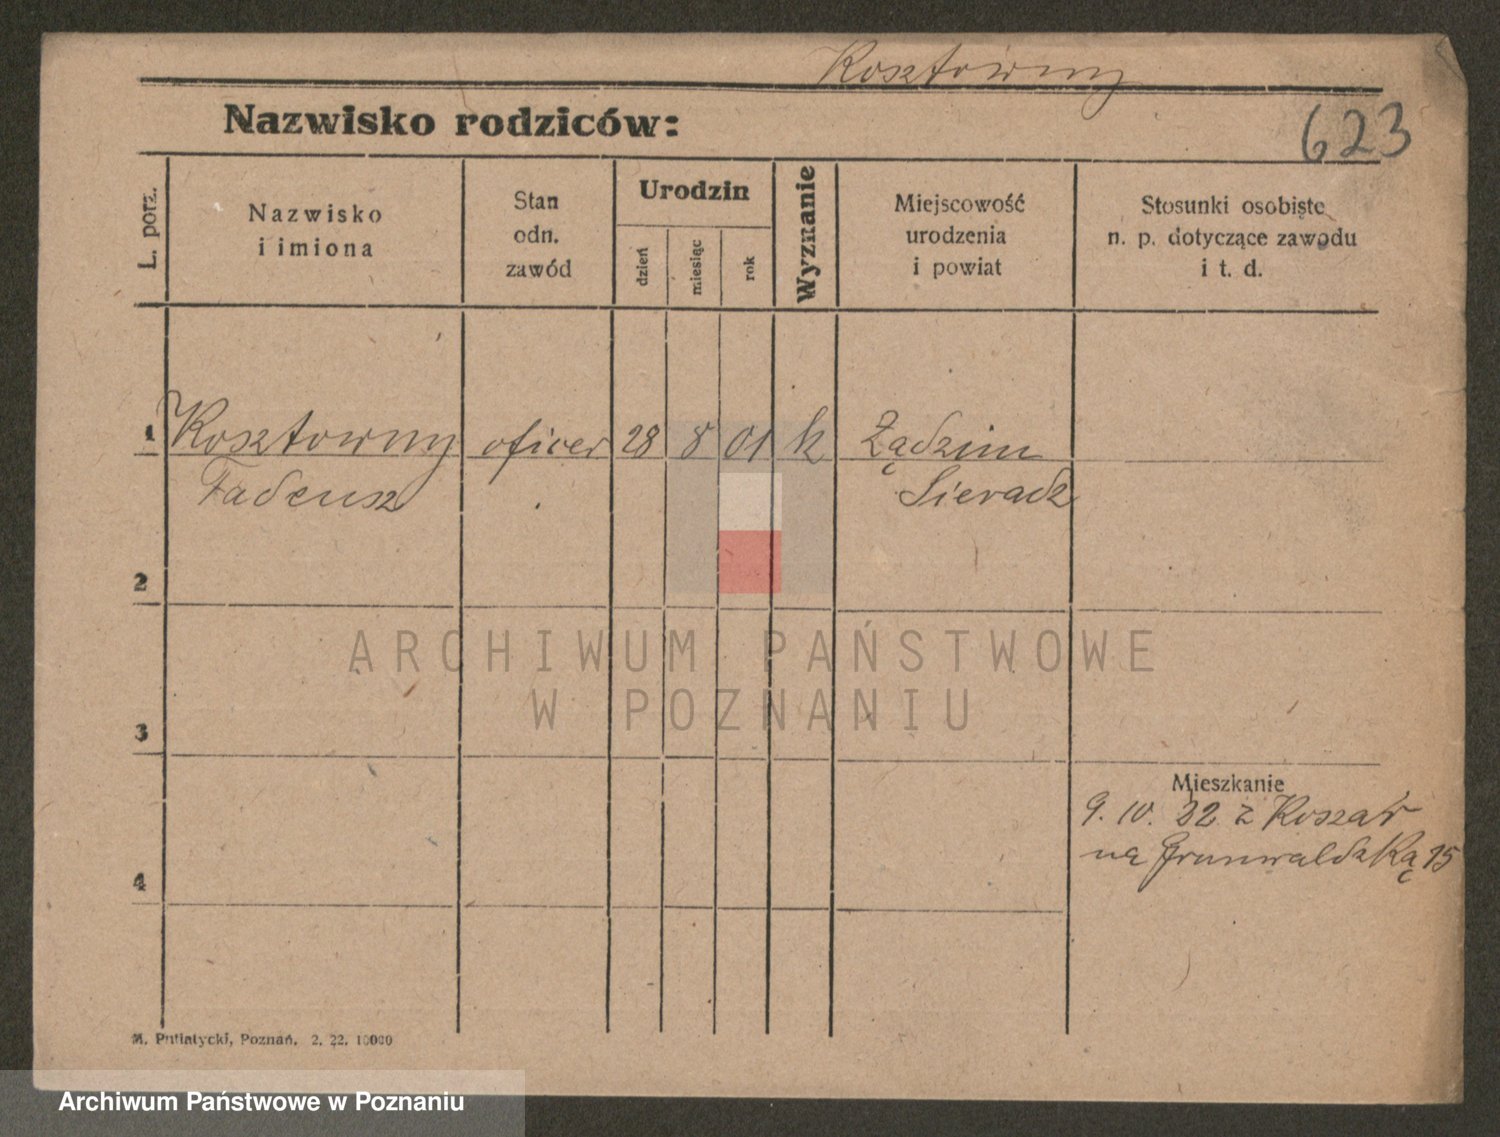 Kosztowny
Nazwisko rodziców:
623
L. porz.
Nazwisko
i imiona
Stan
odn.
zawód
Urodzin
dzień
miesiąc
rok
Wyznanie
Miejscowość
urodzenia
i powiat
Stosunki osobiste
n. p. dotyczące zawodu
i t. d.
1 Kosztowny oficer 28 8 01 k Żądzim
Tadeusz Sieradz
2
ARCHIWUM PAŃSTWOWE
W POZNANIU
3
Mieszkanie
9. 10. 22 z Koszar
na Grunwaldzką 15
4
M. Putiatycki, Poznań. 2. 22. 10000
Archiwum Państwowe w Poznaniu